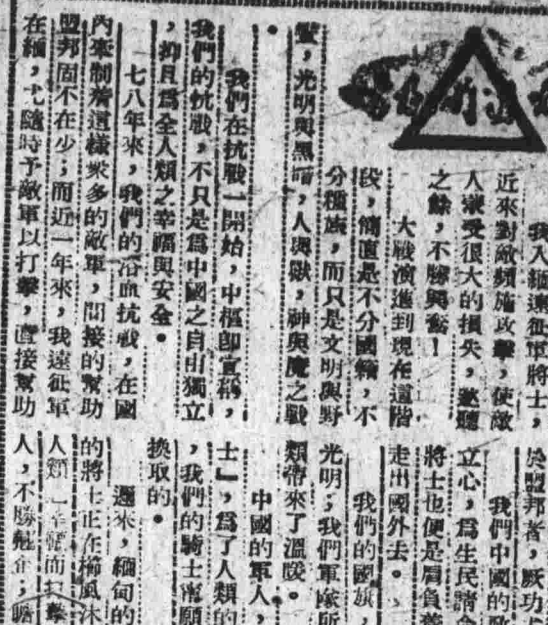 我入緬遠征軍將士，
近來對敵頻施攻擊，使敵
人蒙受很大的損失，逖聽
之餘，不勝興奮！
大戰演進到現在這階
段，簡直是不分國籍，不
分種族，而只是文明與野
蠻，光明與黑暗，人與獸，神與魔之戰
。
我們在抗戰一開始，中樞卽宣稱，
我們的抗戰，不只是爲中國之自由獨立
，抑且爲全人類之幸福與安全。
七八年來，我們的浴血抗戰，在國
內牽制着這樣衆多的敵軍，間接的幫助
盟邦固不在少；而近一年來，我遠征軍
在緬，尤隨時予敵軍以打擊，直接幫助
於盟邦者，厥功
我們中國的
立心，爲生民請命
將士也便是肩負着
走出國外去。
我們的國旗，
光明；我們軍隊所
類帶來了溫暖。
中國的軍人，
士』，爲了人類的
，我們的騎士甯願
換取的。
邇來，緬甸的
的將士正在櫛風沐
人類 幸福而 擊
人，不勝 ；瞻